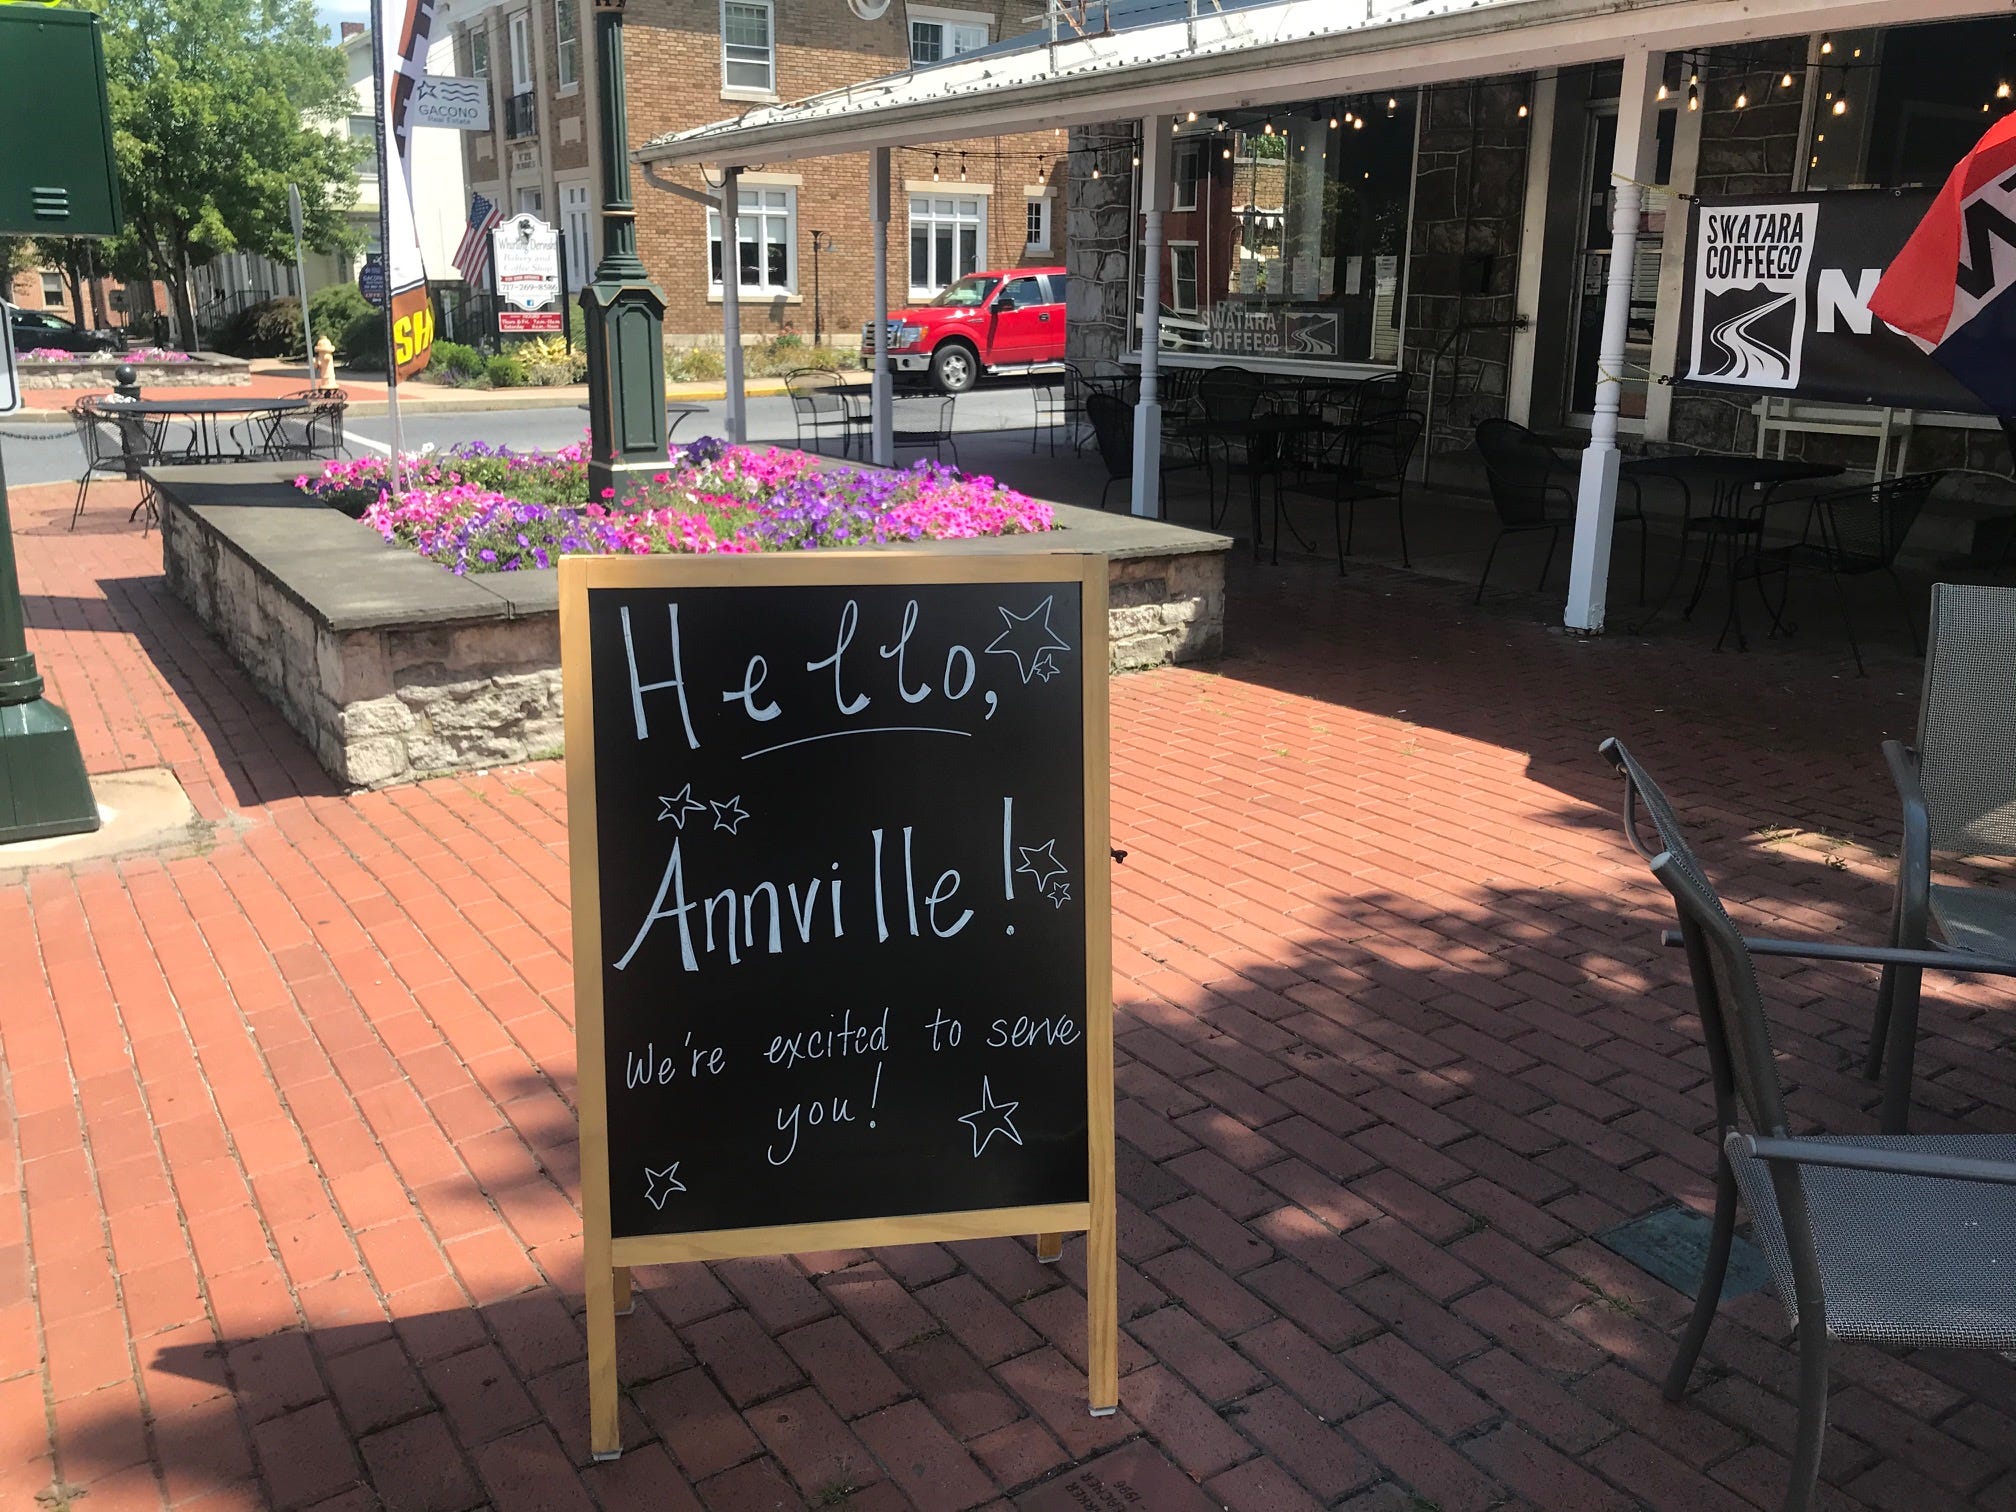 GACONO
Real Estate
Whirling Dervish
Bakery and
Coffee Shop
717-269-8586
SWATARA
COFFEE CO
SWATARA
COFFEE CO
N
Hello,
Annville!
We're excited to serve
you!
1986